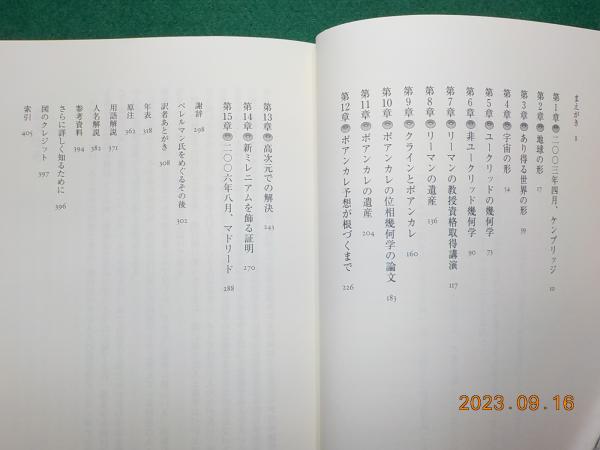 まえがき 8
第1章 二〇〇三年四月、ケンブリッジ 12
第2章 地球の形 17
第3章 あり得る世界の形 39
第4章 宇宙の形 54
第5章 ユークリッドの幾何学 73
第6章 非ユークリッド幾何学 90
第7章 リーマンの教授資格取得講演 117
第8章 リーマンの遺産 136
第9章 クラインとポアンカレ 160
第10章 ポアンカレの位相幾何学の論文 183
第11章 ポアンカレの遺産 204
第12章 ポアンカレ予想が根づくまで 226
第13章 高次元での解決 243
第14章 新ミレニアムを飾る証明 270
第15章 二〇〇六年八月、マドリード 288
謝辞 298
ペレルマン氏をめぐるその後 302
訳者あとがき 308
年表 318
原注 362
用語解説 371
人名解説 382
参考資料 394
さらに詳しく知るために 396
図のクレジット 397
索引 405
2023.09.16